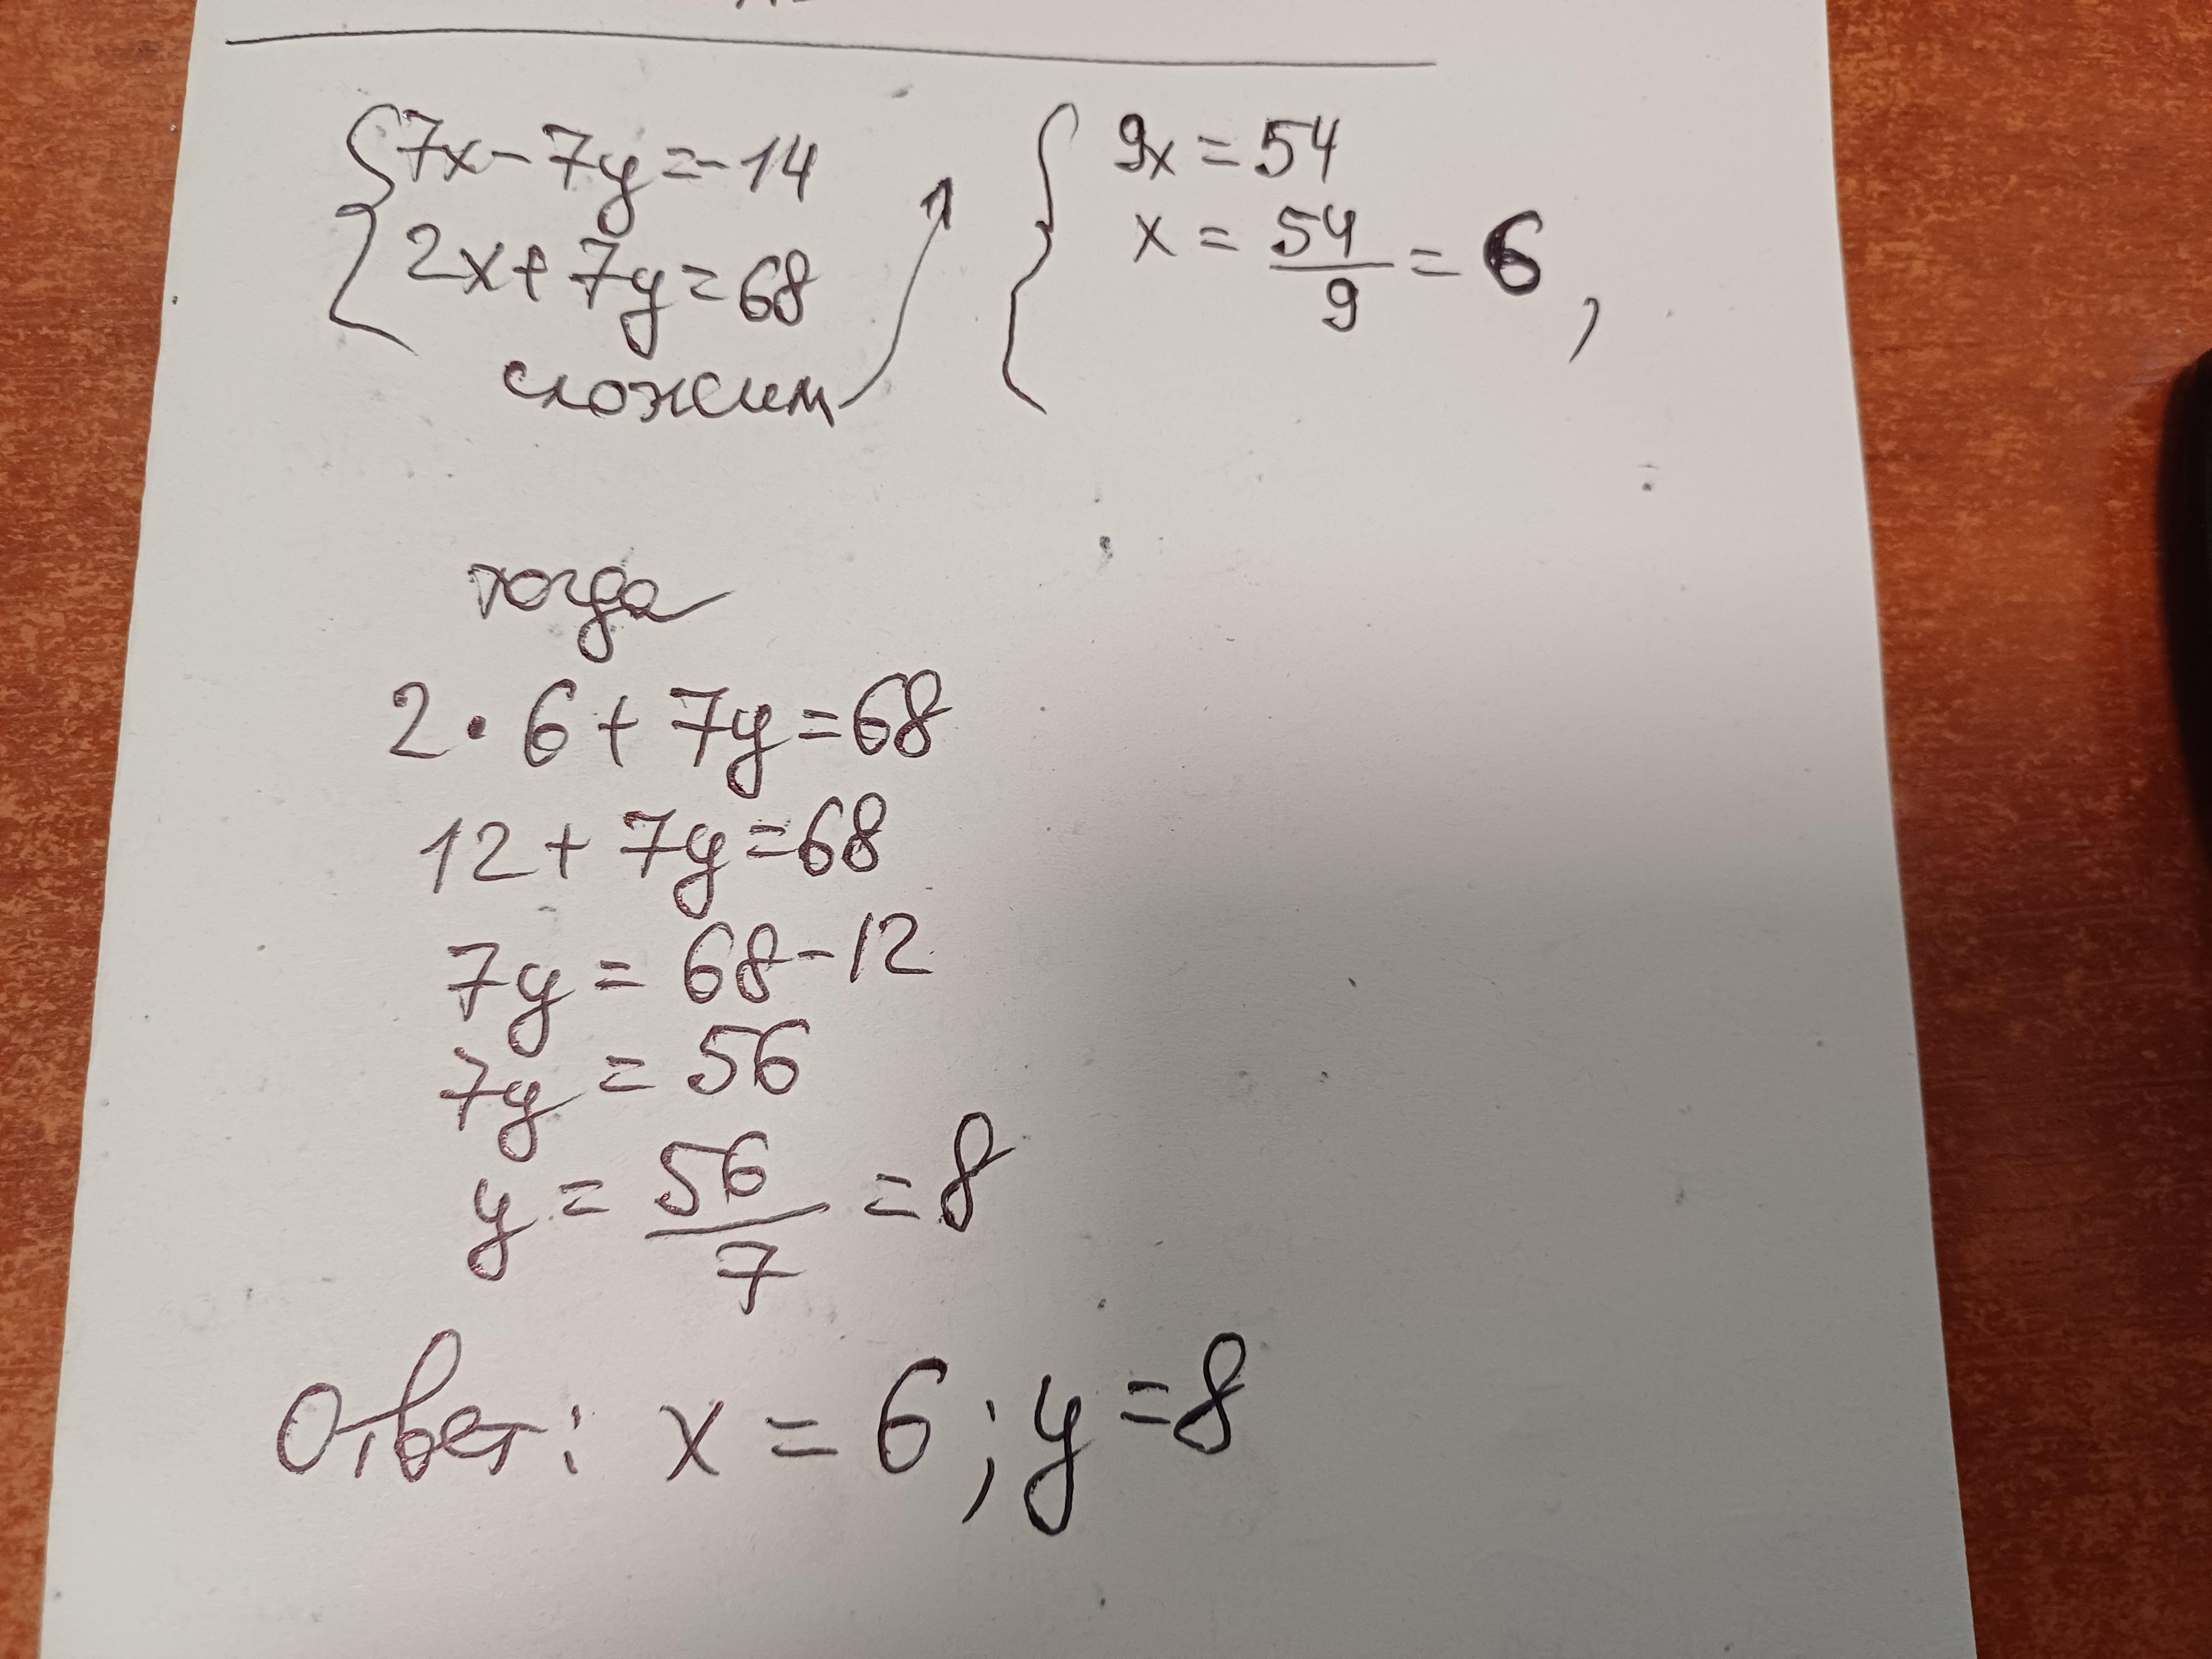 7x-7y=-14
2x+7y=68
сложим
9x=54
x=54/9=6,
тогда
2·6+7y=68
12+7y=68
7y=68-12
7y=56
y=56/7=8
Ответ: x=6; y=8